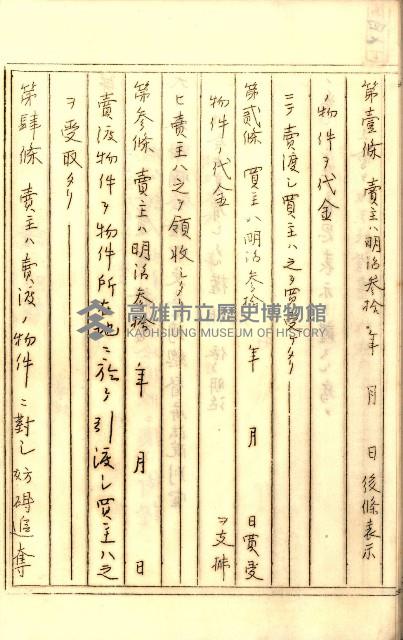 第壹條 賣主ハ明治參拾 年 月 日後條表示
ノ物件ヲ代金
ニテ賣渡シ買主ハ之ヲ買受タリ
第貳條 買主ハ明治參拾 年 月 日買受
物件ノ代金 ヲ支拂
ヒ賣主ハ之ヲ領收シタリ
第參條 賣主ハ明治參拾 年 月 日
賣渡物件ヲ物件所在地ニ於テ引渡シ買主ハ之
ヲ受取タリ
第肆條 賣主ハ賣渡ノ物件ニ對シ妨碍追奪
高雄市立歷史博物館
KAOHSIUNG MUSEUM OF HISTORY